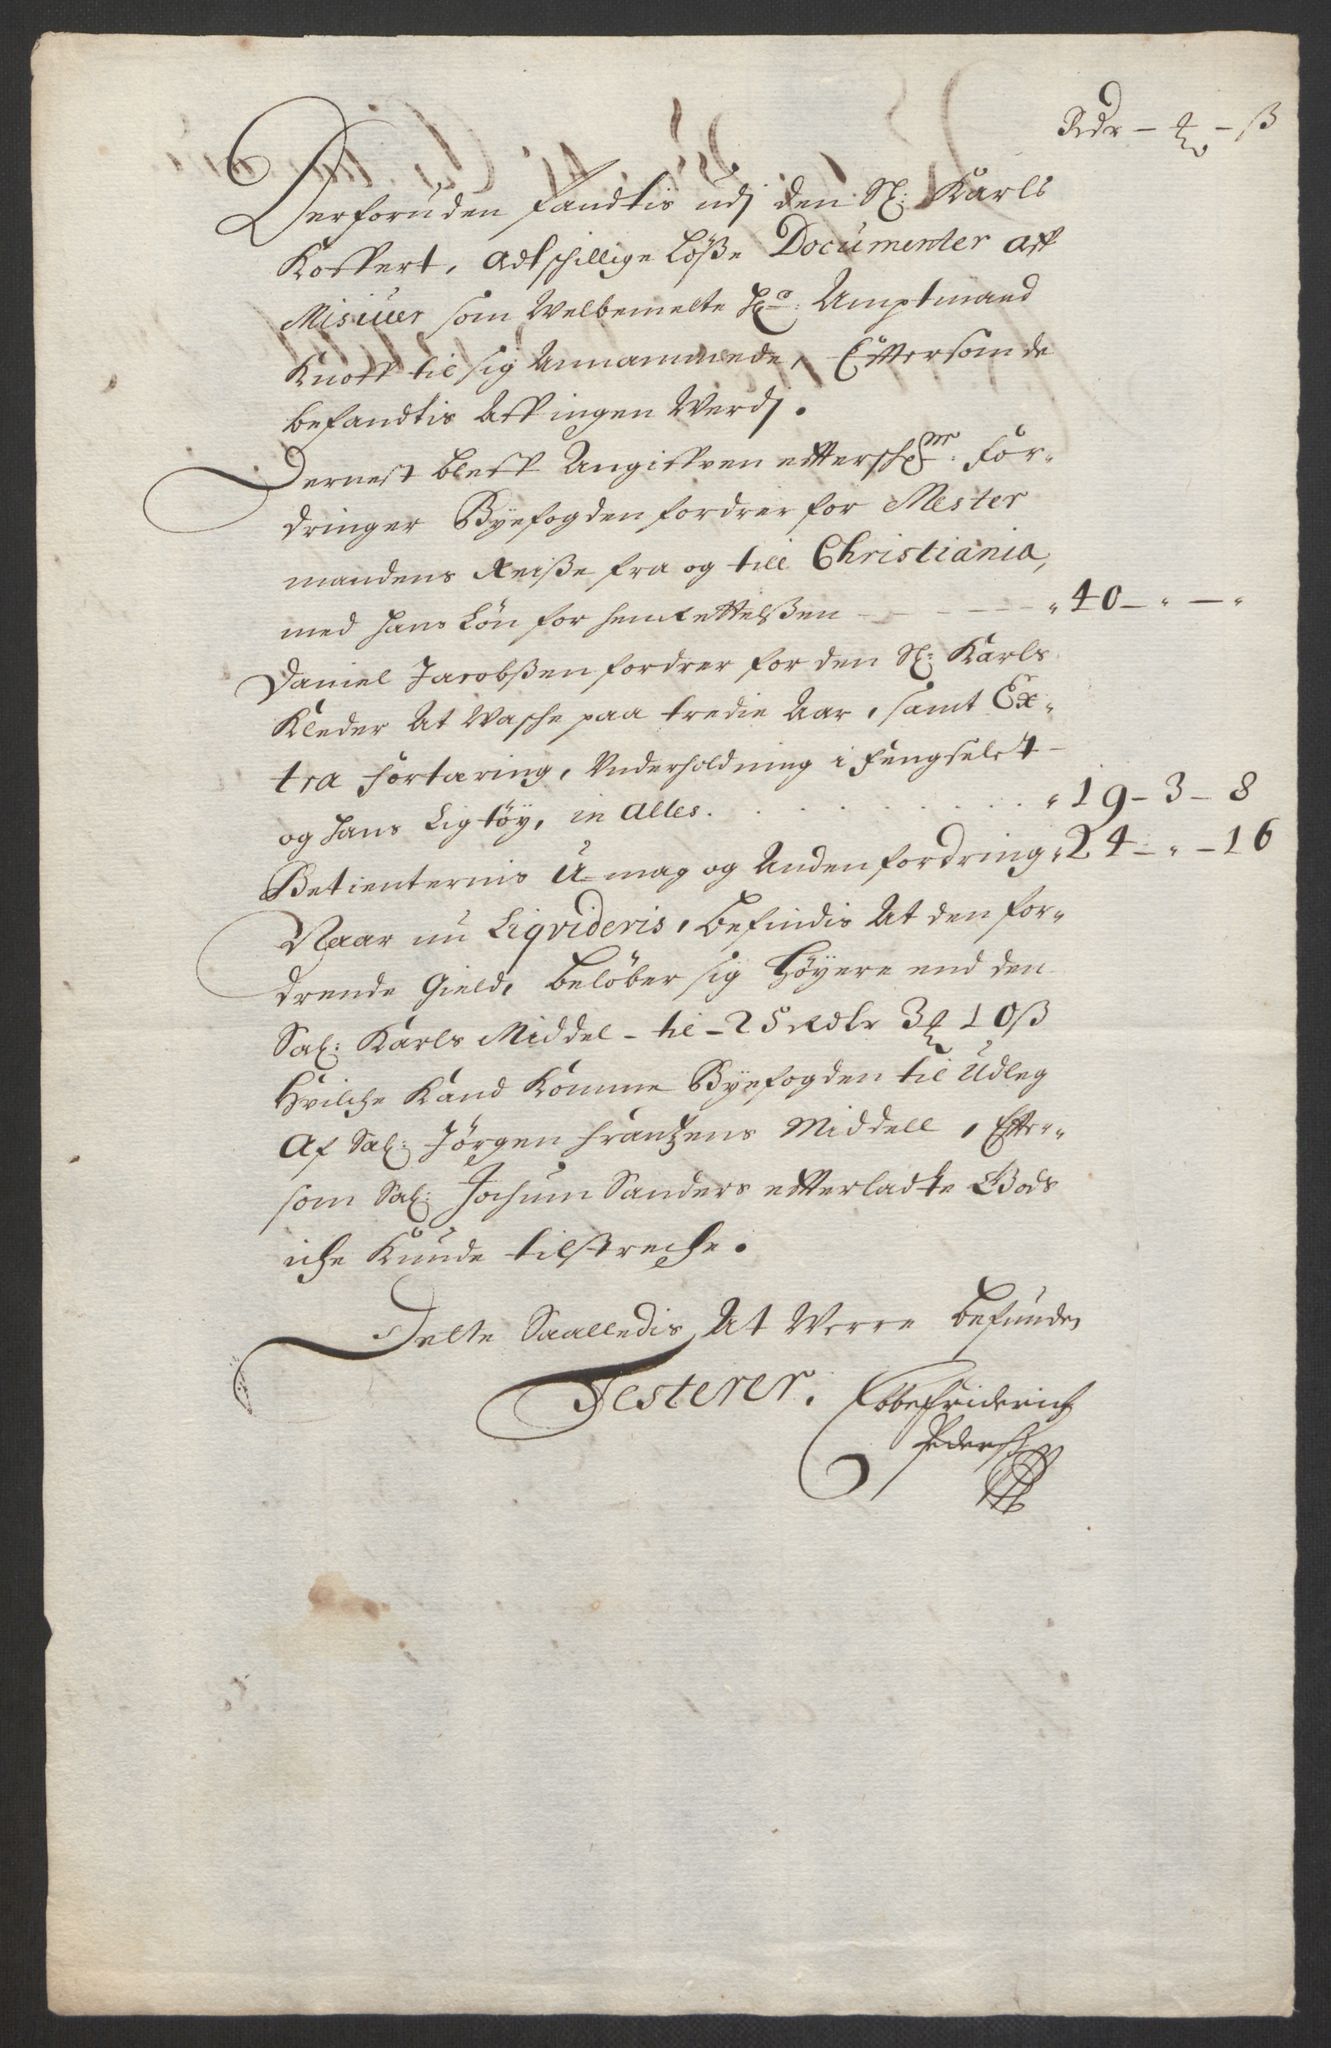 Rdr – ℳ – ß
Derforuden fandtis udj den Sl: Karls
Koffert, adtschillige Löße Documenter aff
Misiver som Welbemelte Hr: Amptmand
Knoff til sig Annammede, Effter som de
befandtis Aff ingen Werdj.
Dernest bleff Angiffven effterschr: For-
dringer Byefogden fordrer for Mester
mandens Reiße fra og till Christiania,
med hans Lön for henrettelßen – – – – „ 40 – „ – „
Daniel Jacobßen fordrer for den Sl: Karls
Kleder At Wasche paa tredie Aar, samt Ex-
tra fortaring, Underholdning i Fengselet
og hans Ligtöy, in Alles. . . . . . „ 19 – 3 – 8
Betienternis U-mag og Anden fordring „ 24 – „ – 16
Naar nu Liqvideris, befindis At den for-
drende Gield, belöber sig Höyere end den
Sal: Karls Middel – til – 25 Rdlr 3 ℳ 10 ß
Hvilche Kand Komme Byefogden til Udleg
Af Sal: Jörgen Frantzens Middell, Effter-
som Sal: Jochum Sanders effterladte Gods
iche Kunde tilstreche.
Dette Saalledis At Were befunden
Testerer. Ebbe Friderich
Pedersen